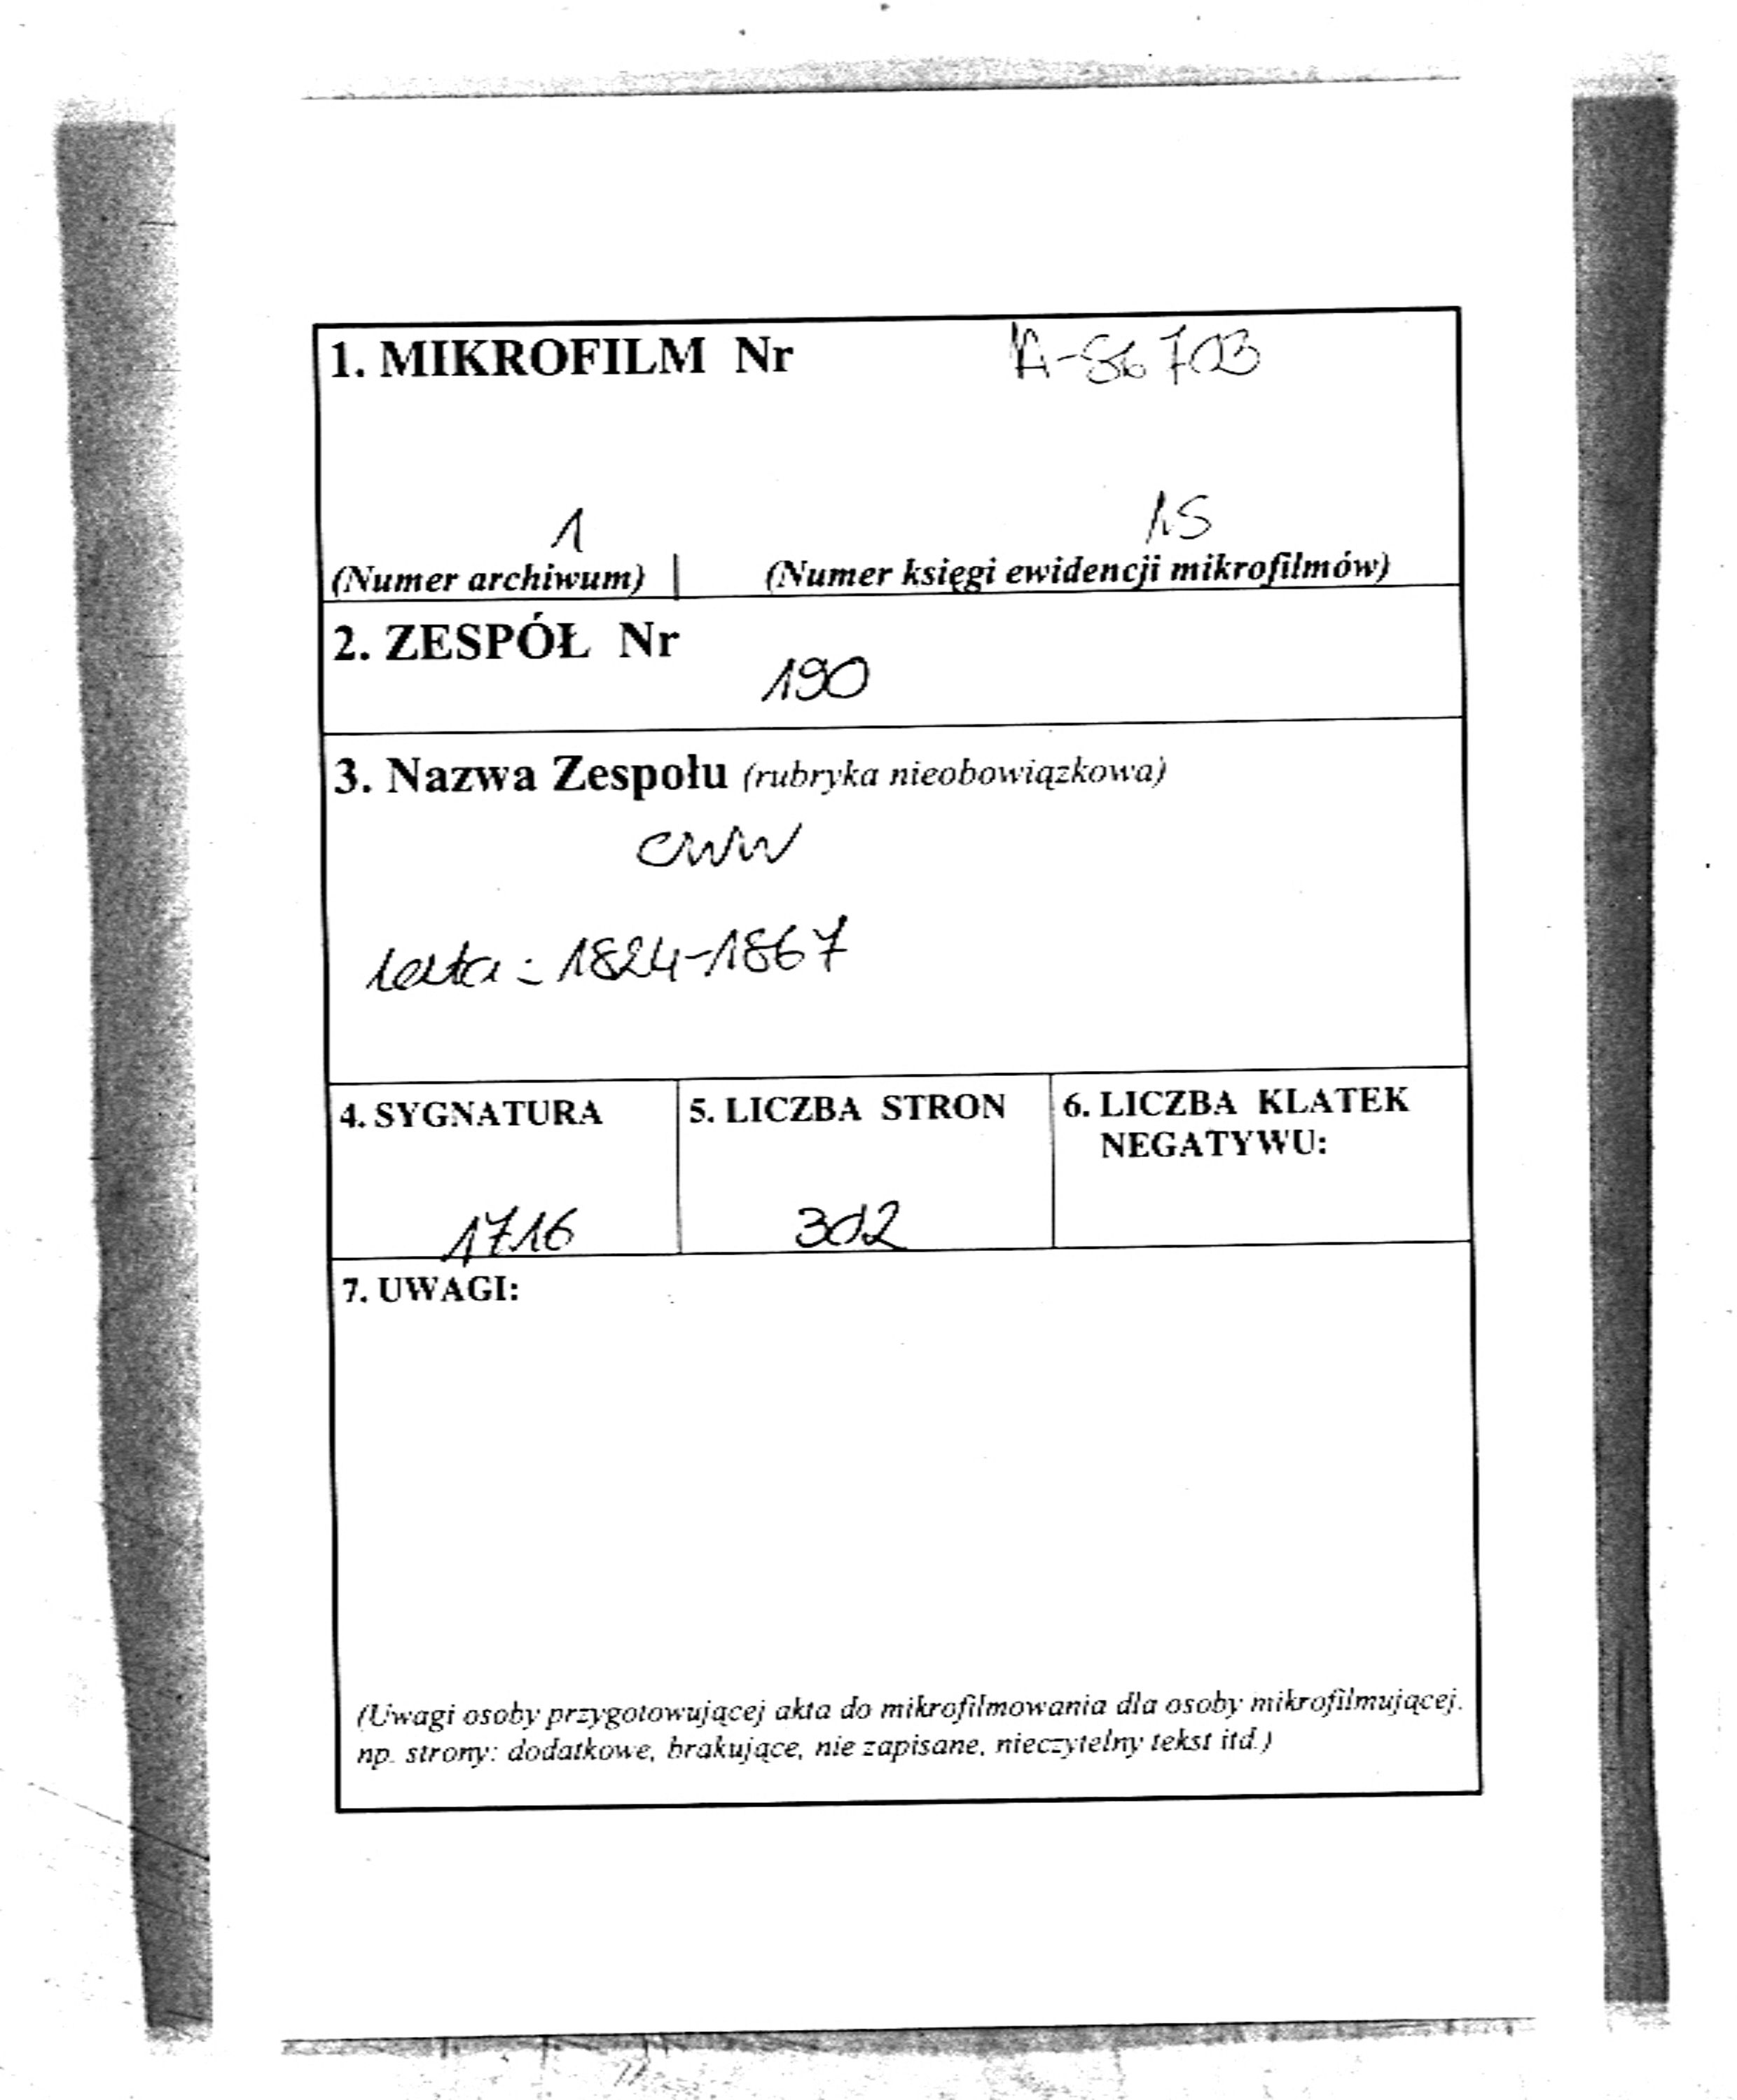 1. MIKROFILM Nr A-86703
1 15
(Numer archiwum) | (Numer księgi ewidencji mikrofilmów)
2. ZESPÓŁ Nr
190
3. Nazwa Zespołu (rubryka nieobowiązkowa)
CWW
lata: 1824-1867
4. SYGNATURA 5. LICZBA STRON 6. LICZBA KLATEK
NEGATYWU:
1716 302
7. UWAGI:
(Uwagi osoby przygotowującej akta do mikrofilmowania dla osoby mikrofilmującej.
np. strony: dodatkowe, brakujące, nie zapisane, nieczytelny tekst itd.)